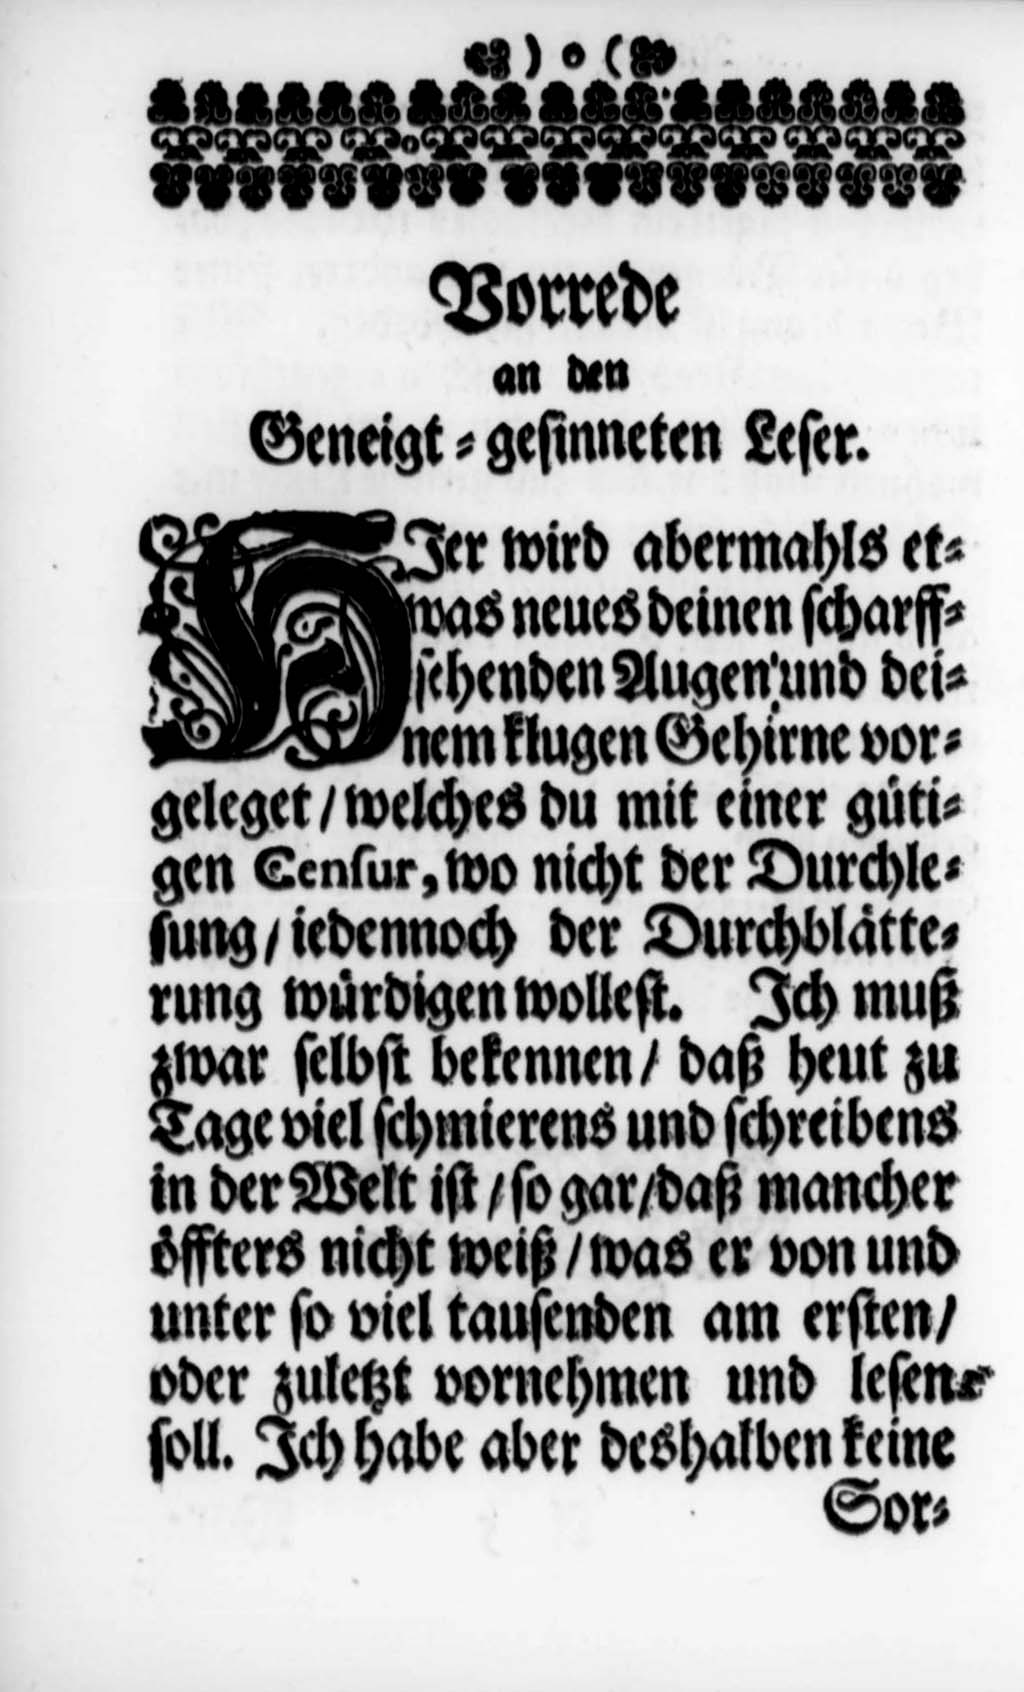 ) o (
Vorrede
an den
Geneigt⸗gesinneten Leser.
HIer wird abermahls et⸗
was neues deinen scharff⸗
sehenden Augen und dei⸗
nem klugen Gehirne vor⸗
geleget / welches du mit einer güti⸗
gen Censur, wo nicht der Durchle⸗
sung / iedennoch der Durchblätte⸗
rung würdigen wollest. Ich muß
zwar selbst bekennen / daß heut zu
Tage viel schmierens und schreibens
in der Welt ist / so gar / daß mancher
öffters nicht weiß / was er von und
unter so viel tausenden am ersten /
oder zuletzt vornehmen und lesen
soll. Ich habe aber deshalben keine
Sor⸗